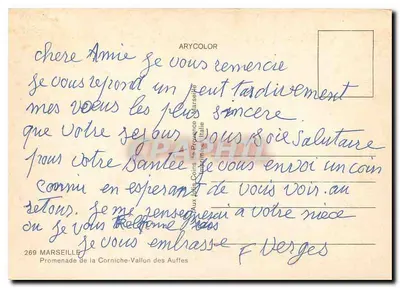 ARYCOLOR
chere Amie je vous remercie
je vous repond un peut tardivement
mes vœus les plus sincere
que votre sejour vous soie salutaire
pour votre santée je vous envoi un coin
connu en esperant de vous voir au
retour. je me renseignerai a votre niece
ou je vous
je vous embrasse F Verges
269 MARSEILLE
Promenade de la Corniche-Vallon des Auffes